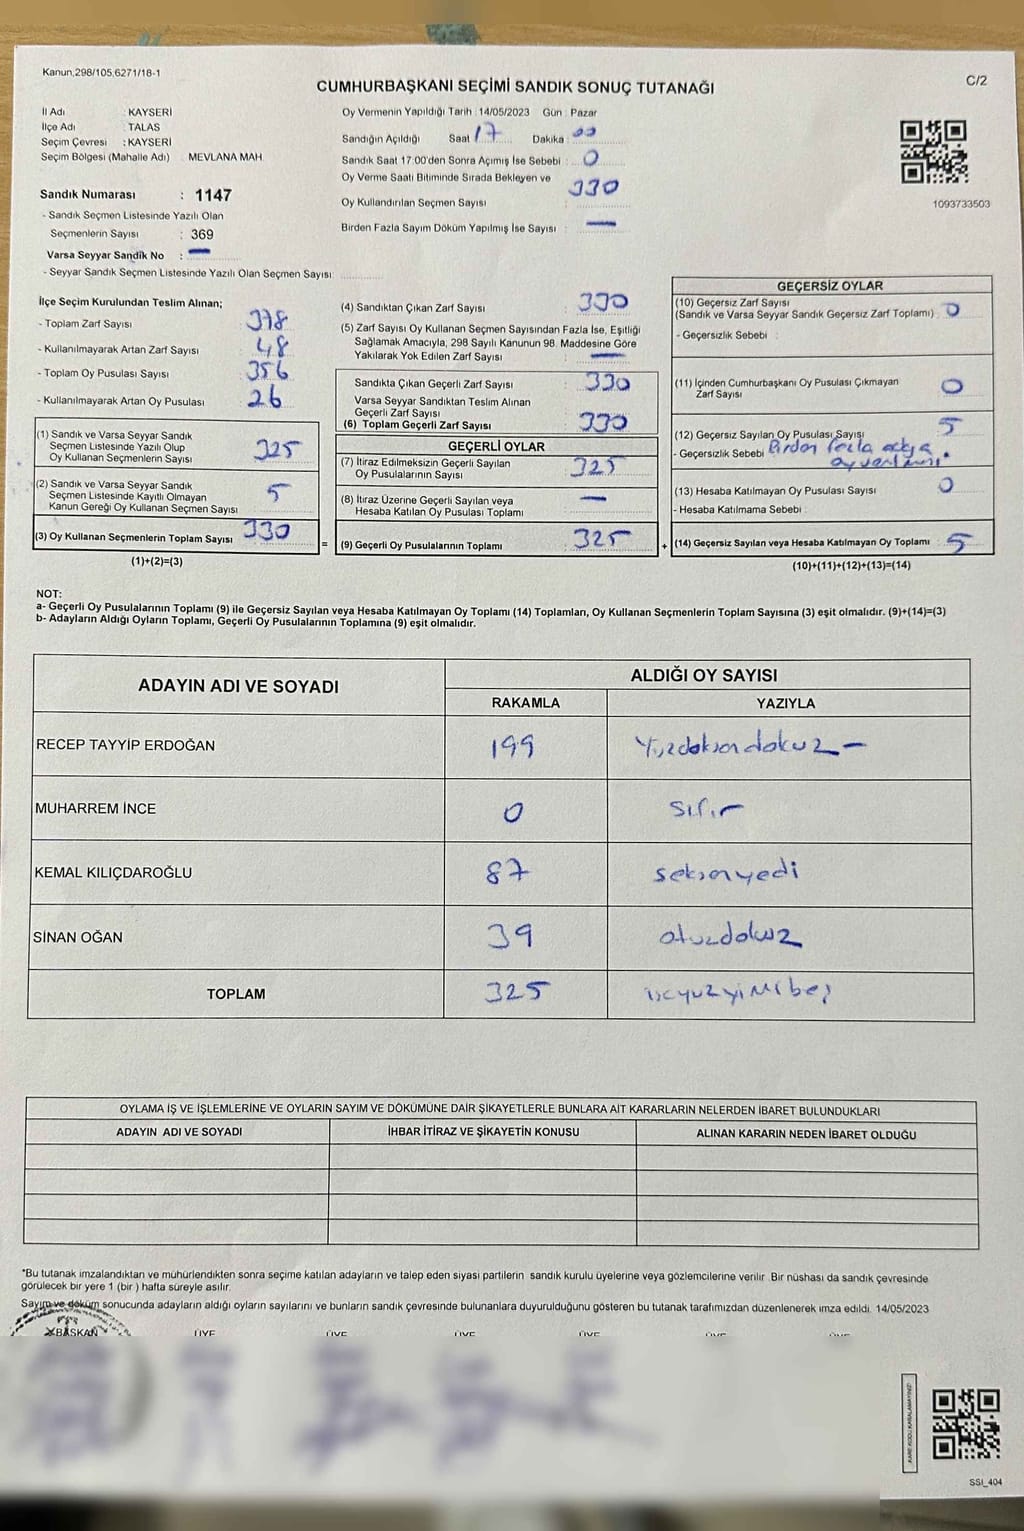 Kanun,298/105,6271/18-1
C/2
CUMHURBAŞKANI SEÇİMİ SANDIK SONUÇ TUTANAĞI
İl Adı : KAYSERİ
İlçe Adı : TALAS
Seçim Çevresi : KAYSERİ
Seçim Bölgesi (Mahalle Adı) : MEVLANA MAH.
Sandık Numarası : 1147
- Sandık Seçmen Listesinde Yazılı Olan
Seçmenlerin Sayısı : 369
Varsa Seyyar Sandık No : —
- Seyyar Sandık Seçmen Listesinde Yazılı Olan Seçmen Sayısı:
Oy Vermenin Yapıldığı Tarih : 14/05/2023 Gün : Pazar
Sandığın Açıldığı Saat 17 Dakika : 00
Sandık Saat 17:00'den Sonra Açımış İse Sebebi : 0
Oy Verme Saati Bitiminde Sırada Bekleyen ve
Oy Kullandırılan Seçmen Sayısı : 330
Birden Fazla Sayım Döküm Yapılmış İse Sayısı : —
1093733503
İlçe Seçim Kurulundan Teslim Alınan;
- Toplam Zarf Sayısı : 378
- Kullanılmayarak Artan Zarf Sayısı : 48
- Toplam Oy Pusulası Sayısı : 356
- Kullanılmayarak Artan Oy Pusulası : 26
(1) Sandık ve Varsa Seyyar Sandık
Seçmen Listesinde Yazılı Olup
Oy Kullanan Seçmenlerin Sayısı : 325
(2) Sandık ve Varsa Seyyar Sandık
Seçmen Listesinde Kayıtlı Olmayan
Kanun Gereği Oy Kullanan Seçmen Sayısı : 5
(3) Oy Kullanan Seçmenlerin Toplam Sayısı : 330
(1)+(2)=(3)
=
(4) Sandıktan Çıkan Zarf Sayısı : 330
(5) Zarf Sayısı Oy Kullanan Seçmen Sayısından Fazla İse, Eşitliği
Sağlamak Amacıyla, 298 Sayılı Kanunun 98. Maddesine Göre
Yakılarak Yok Edilen Zarf Sayısı : —
Sandıkta Çıkan Geçerli Zarf Sayısı : 330
Varsa Seyyar Sandıktan Teslim Alınan
Geçerli Zarf Sayısı
(6) Toplam Geçerli Zarf Sayısı : 330
GEÇERLİ OYLAR
(7) İtiraz Edilmeksizin Geçerli Sayılan
Oy Pusulalarının Sayısı : 325
(8) İtiraz Üzerine Geçerli Sayılan veya
Hesaba Katılan Oy Pusulası Toplamı : —
(9) Geçerli Oy Pusulalarının Toplamı : 325
+
GEÇERSİZ OYLAR
(10) Geçersiz Zarf Sayısı
(Sandık ve Varsa Seyyar Sandık Geçersiz Zarf Toplamı) : 0
- Geçersizlik Sebebi :
(11) İçinden Cumhurbaşkanı Oy Pusulası Çıkmayan
Zarf Sayısı : 0
(12) Geçersiz Sayılan Oy Pusulası Sayısı : 5
- Geçersizlik Sebebi : Birden fazla adaya
oy verilmesi.
(13) Hesaba Katılmayan Oy Pusulası Sayısı : 0
- Hesaba Katılmama Sebebi :
(14) Geçersiz Sayılan veya Hesaba Katılmayan Oy Toplamı : 5
(10)+(11)+(12)+(13)=(14)
NOT:
a- Geçerli Oy Pusulalarının Toplamı (9) ile Geçersiz Sayılan veya Hesaba Katılmayan Oy Toplamı (14) Toplamları, Oy Kullanan Seçmenlerin Toplam Sayısına (3) eşit olmalıdır. (9)+(14)=(3)
b- Adayların Aldığı Oyların Toplamı, Geçerli Oy Pusulalarının Toplamına (9) eşit olmalıdır.
ADAYIN ADI VE SOYADI ALDIĞI OY SAYISI
RAKAMLA YAZIYLA
RECEP TAYYİP ERDOĞAN 199 Yüzdoksandokuz —
MUHARREM İNCE 0 Sıfır
KEMAL KILIÇDAROĞLU 87 seksenyedi
SİNAN OĞAN 39 otuzdokuz
TOPLAM 325 üçyüzyirmibeş
OYLAMA İŞ VE İŞLEMLERİNE VE OYLARIN SAYIM VE DÖKÜMÜNE DAİR ŞİKAYETLERLE BUNLARA AİT KARARLARIN NELERDEN İBARET BULUNDUKLARI
ADAYIN ADI VE SOYADI İHBAR İTİRAZ VE ŞİKAYETİN KONUSU ALINAN KARARIN NEDEN İBARET OLDUĞU
*Bu tutanak imzalandıktan ve mühürlendikten sonra seçime katılan adayların ve talep eden siyasi partilerin sandık kurulu üyelerine veya gözlemcilerine verilir. Bir nüshası da sandık çevresinde
görülecek bir yere 1 (bir ) hafta süreyle asılır.
Sayım ve döküm sonucunda adayların aldığı oyların sayılarını ve bunların sandık çevresinde bulunanlara duyurulduğunu gösteren bu tutanak tarafımızdan düzenlenerek imza edildi. 14/05/2023
BAŞKAN ÜYE ÜYE ÜYE ÜYE ÜYE ÜYE
KARE KODU KARALAMAYINIZ!
SSI_404